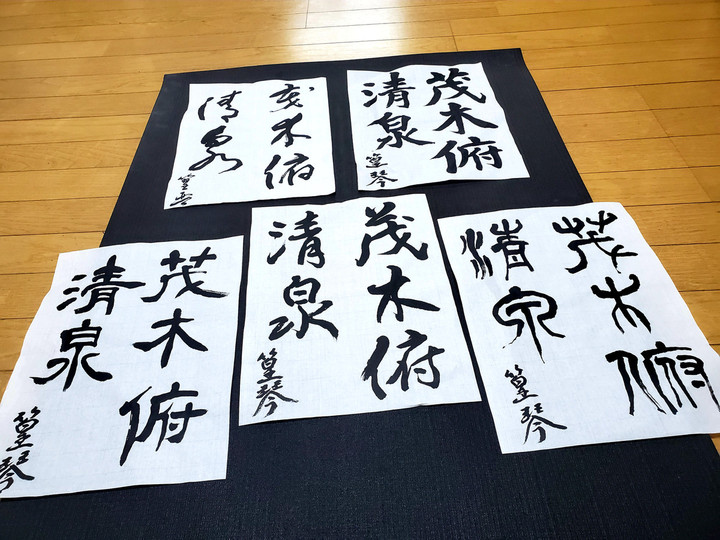 茂木俯
清泉
篁琴
茂木俯
清泉
篁琴
茂木俯
清泉
篁琴
茂木俯
清泉
篁琴
茂木俯
清泉
篁琴